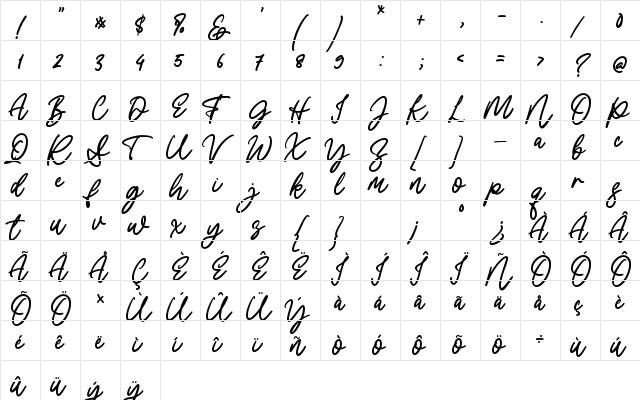 ! " # $ % & ' ( ) * + , - . / 0
1 2 3 4 5 6 7 8 9 : ; < = > ? @
A B C D E F G H I J K L M N O P
Q R S T U V W X Y Z [ ] — a b c
d e f g h i j k l m n o p q r s
t u v w x y z { } ¡ ¿ À Á Â
Ã Ä Å Ç È É Ê Ë Ì Í Î Ï Ñ Ò Ó Ô
Õ Ö × Ù Ú Û Ü Ý à á â ã ä å ç è
é ê ë ì í î ï ñ ò ó ô õ ö ÷ ù ú
û ü ý ÿ